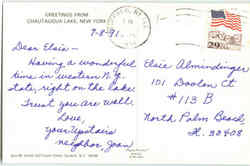 GREETINGS FROM
CHAUTAUQUA LAKE, NEW YORK
7-8-91.
Dear Elsie -
Having a wonderful
time in western N.Y.
state, right on the lake.
Trust you are well.
Love,
your upstairs
neighbor Joan
29 USA
Elsie Almindinger
101 Doolen Ct
# 113 B
North Palm Beach,
Fl. 33408